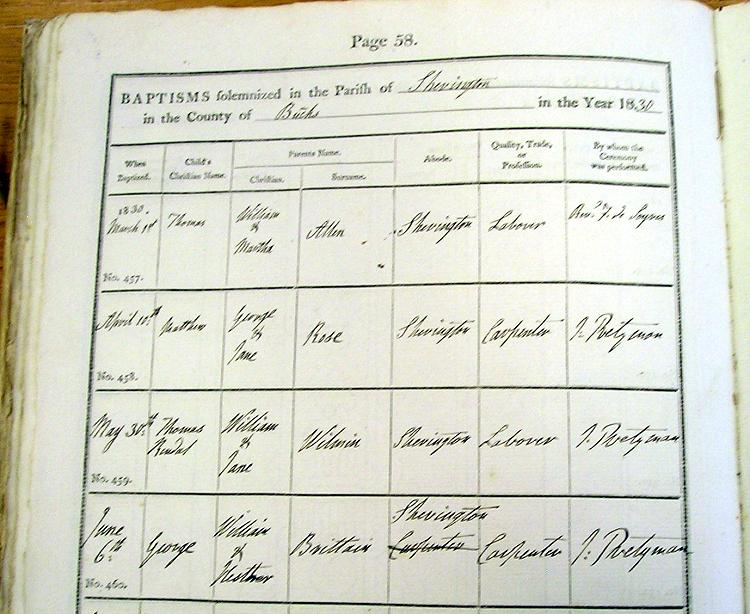 Page 58.
BAPTISMS solemnized in the Parish of Shevington
in the County of Bucks in the Year 1830
When Baptized.
Child's Christian Name.
Parents Name.
Christian.
Surname.
Abode.
Quality, Trade, or Profession.
By whom the Ceremony was performed.
1830. March 1st
No. 457.
Thomas
William & Martha
Allen
Shevington
Labourer
April 10th
No. 458.
Matthew
George & Jane
Rose
Shevington
Carpenter
J: Pretyman
May 30th
No. 459.
Thomas Kendal
William & Jane
Wilmin
Shevington
Labourer
J. Pretyman
June 6th
No. 460.
George
William & Hesther
Brittain
Shevington
Carpenter
Carpenter
J: Pretyman